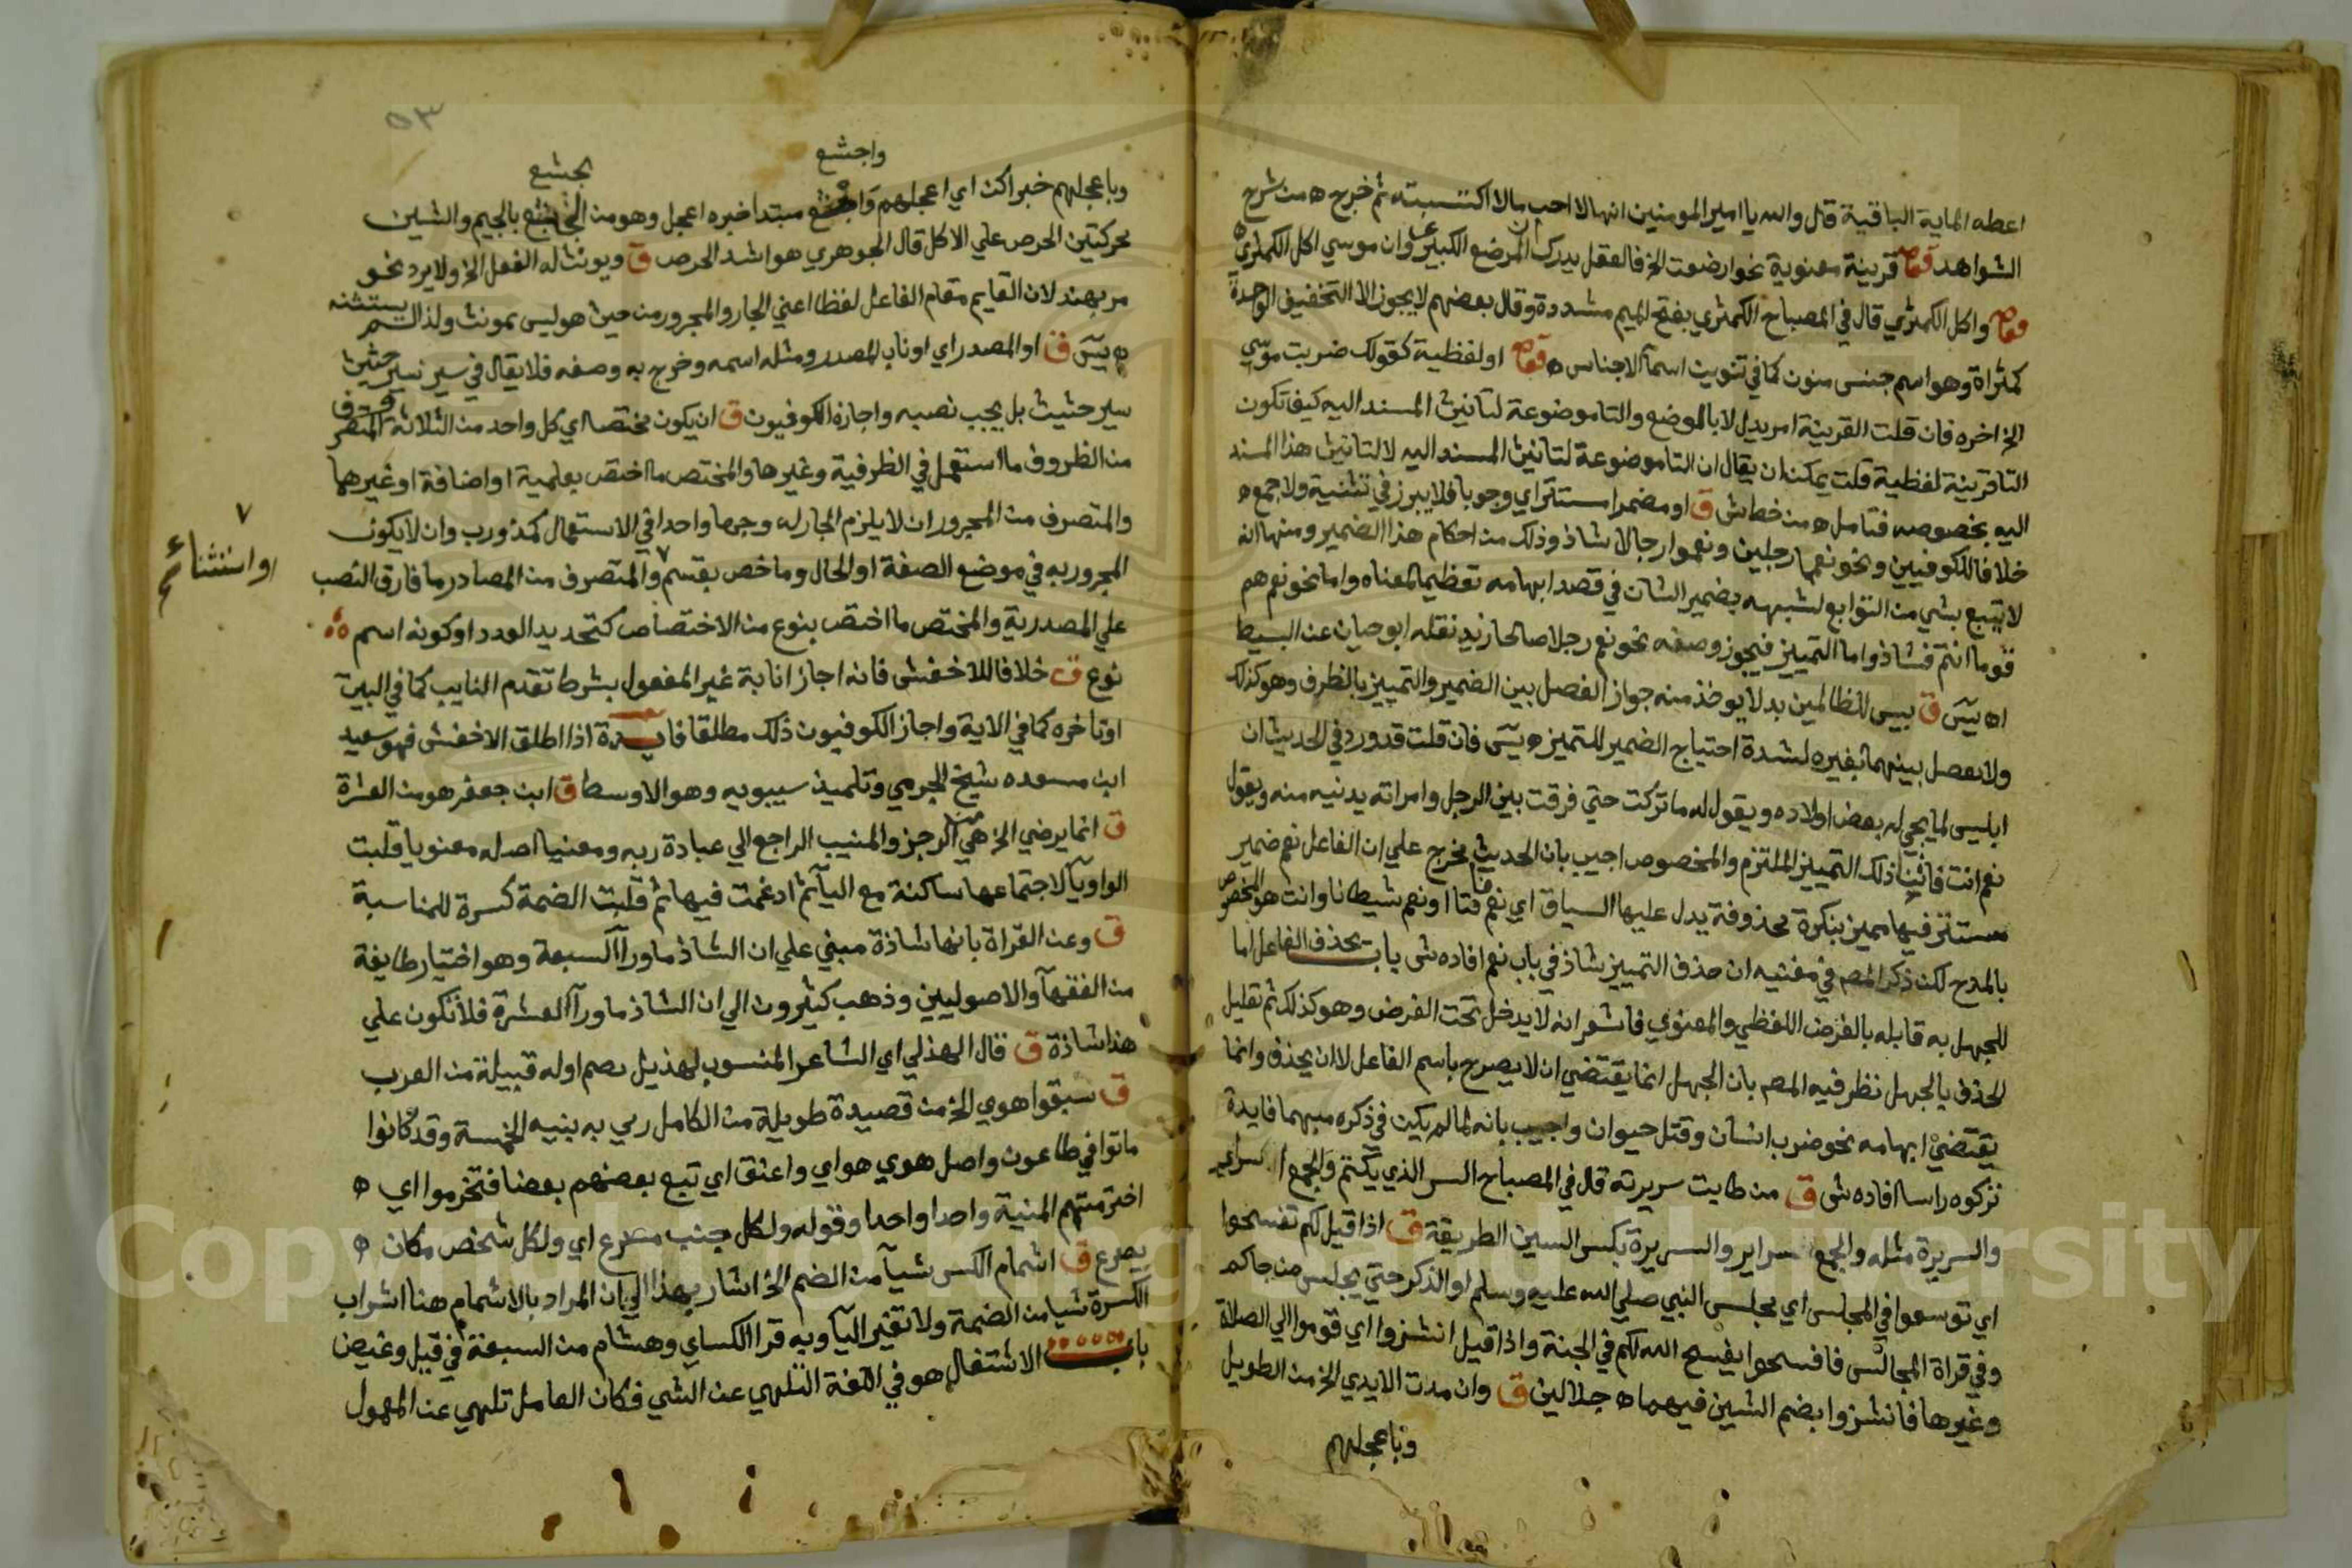 اعطه الماية الباقية قال والله يا امير المومنين انها لا احب مالا اكتسبته ثم خرج ه من شرح
الشواهد قوله قرينة معنوية نحو ارضعت الخ فالعقل يدرك ان المرضع الكبير وان موسي اكل الكمثري ه
قوله واكل الكمثري قال في المصباح الكمثري بفتح الميم مشددة وقال بعضهم لا يجوز الا التخفيف الوحدة
كمثراة وهو اسم جنس منون كما في تنوين اسمآ الاجناس ه قوله او لفظية كقولك ضربت موسي
الخ اخره فان قلت القرينة امر يدل لا بالوضع والتا موضوعة لتانيث المسند اليه كيف تكون
التا قرينة لفظية قلت يمكن ان يقال ان التا موضوعة لتانيث المسند اليه لا لتانيث هذا المسند
اليه بخصوصه فتامل ه من خطاش ق او مضمرا مستترا اي وجوبا فلا يبرز في تثنية ولا جمع ه
خلافا للكوفيين ونحو نعما رجلين ونعموا رجالا شاذ وذلك من احكام هذا الضمير ومنها انه
لا يتبع بشي من التوابع لشبهه بضمير الشان في قصد ابهامه تعظيما لمعناه واما نحو نعم هم
قوما انتم فشاذ واما التمييز فيجوز وصفه نحو نعم رجلا صالحا زيد نقله ابو حيان عن البسيط
اه يس ق بيس للظالمين بدلا يوخذ منه جواز الفصل بين الضمير والتمييز بالظرف وهو كذلك
ولا يفصل بينهما بغيره لشدة احتياج الضمير للتميز ه يس فان قلت قد ورد في الحديث ان
ابليس لما يجي له بعض اولاده ويقول له ما تركت حتي فرقت بين الرجل وامراته يدنيه منه ويقول
نعم انت فاين ذلك التمييز الملتزم والمخصوص اجيب بان الحديث يخرج علي ان الفاعل نعم ضمير
مستتر فيها مميز بنكرة محذوفة يدل عليها السياق اي نعم فتانا او نعم شيطانا وانت هو المخصوص
بالمدح لكن ذكر المصم في مغنيه ان حذف التمييز شاذ في باب نعم افاده ش باب يحذف الفاعل اما
للجهل به قابله بالغرض اللفظي والمعنوي فاشعر انه لا يدخل تحت الغرض وهو كذلك ثم تعليل
الحذف بالجهل نظر فيه المصم بان الجهل انما يقتضي ان لا يصرح باسم الفاعل لا ان يحذف وانما
يقتضي ابهامه نحو ضرب انسان وقتل حيوان واجيب بانه لما لم يكن في ذكره مبهما فايدة
تركوه راسا افاده ش ق من طابت سريرته قال في المصباح السر الذي يكتم والجمع اسرار
والسريرة مثله والجمع سراير والسريرة بكسر السين الطريقة ق اذا قيل لكم تفسحوا
اي توسعوا في المجلس اي مجلس النبي صلي الله عليه وسلم او الذكر حتي يجلس من جاكم
وفي قراة المجالس فافسحوا يفسح الله لكم في الجنة واذا قيل انشزوا اي قوموا الي الصلاة
وغيرها فانشزوا بضم الشين فيهما ه جلالين ق وان مدت الايدي الخ من الطويل
وباعجلهم
٥٣
واجشع
الجشع
وباعجلهم خبر اكن اي اعجلهم واجشع مبتدا خبره اعجل وهو من الجشع بالجيم والشين
محركتين الحرص علي الاكل قال الجوهري هو اشد الحرص ق ويونث له الفعل الخ ولا يرد نحو
مر بهند لان القايم مقام الفاعل لفظا اعني الجار والمجرور من حيث هو ليس بمونث ولذا لم يستثنه
ه يس ق او المصدر اي او ناب المصدر ومثله اسمه وخرج به وصفه فلا يقال في سير سير حثيث
سير حثيث بل يجب نصبه واجازه الكوفيون ق ان يكون مختصا اي كل واحد من الثلاثة المتصرف
من الظروف ما استعمل في الظرفية وغيرها والمختص ما اختص بعلمية او اضافة او غيرهما
والمتصرف من المجرور ان لا يلزم الجار له وجها واحدا في الاستعمال كمذ ورب وان لا يكون
المجرور به في موضع الصفة او الحال وما خص بقسم ٧ والمتصرف من المصادر ما فارق النصب
٧ او استثناء صح
علي المصدرية والمختص ما اختص بنوع من الاختصاص كتحديد العدد او كونه اسم
نوع ق خلافا للاخفش فانه اجاز انابة غير المفعول بشرط تقدم النايب كما في البيت
او تاخره كما في الاية واجاز الكوفيون ذلك مطلقا فايدة اذا اطلق الاخفش فهو سعيد
ابن مسعده شيخ الجرمي وتلميذ سيبويه وهو الاوسط ق ابن جعفر هو من العشرة
ق انما يرضي الخ هي من الرجز والمنيب الراجع الي عبادة ربه ومعنيا اصله معنويا قلبت
الواو يآ لاجتماعها ساكنة مع اليآ ثم ادغمت فيها ثم قلبت الضمة كسرة للمناسبة
ق وعن القراة بانها شاذة مبني علي ان الشاذ ما ورآ السبعة وهو اختيار طايفة
من الفقهآ والاصوليين وذهب كثيرون الي ان الشاذ ما ورآ العشرة فلا تكون علي
هذا شاذة ق قال الهذلي اي الشاعر المنسوب لهذيل بضم اوله قبيلة من العرب
ق سبقوا هوي الخ من قصيدة طويلة من الكامل رثي به بنيه الخمسة وقد كانوا
ماتوا في طاعون واصل هوي هواي واعنق اي تبع بعضهم بعضا فتخرموا اي ه
اخترمتهم المنية واحدا واحدا وقوله ولكل جنب مصرع اي ولكل شخص مكان ه
يصرع ق اشمام الكسر شيآ من الضم الخ اشار بهذا الي ان المراد بالاشمام هنا اشراب
الكسرة شيا من الضمة ولا تغير اليآ وبه قرا الكساي وهشام من السبعة في قيل وغيض
باب الاشتغال هو في اللغة التلهي عن الشي فكان العامل تلهي عن المعمول